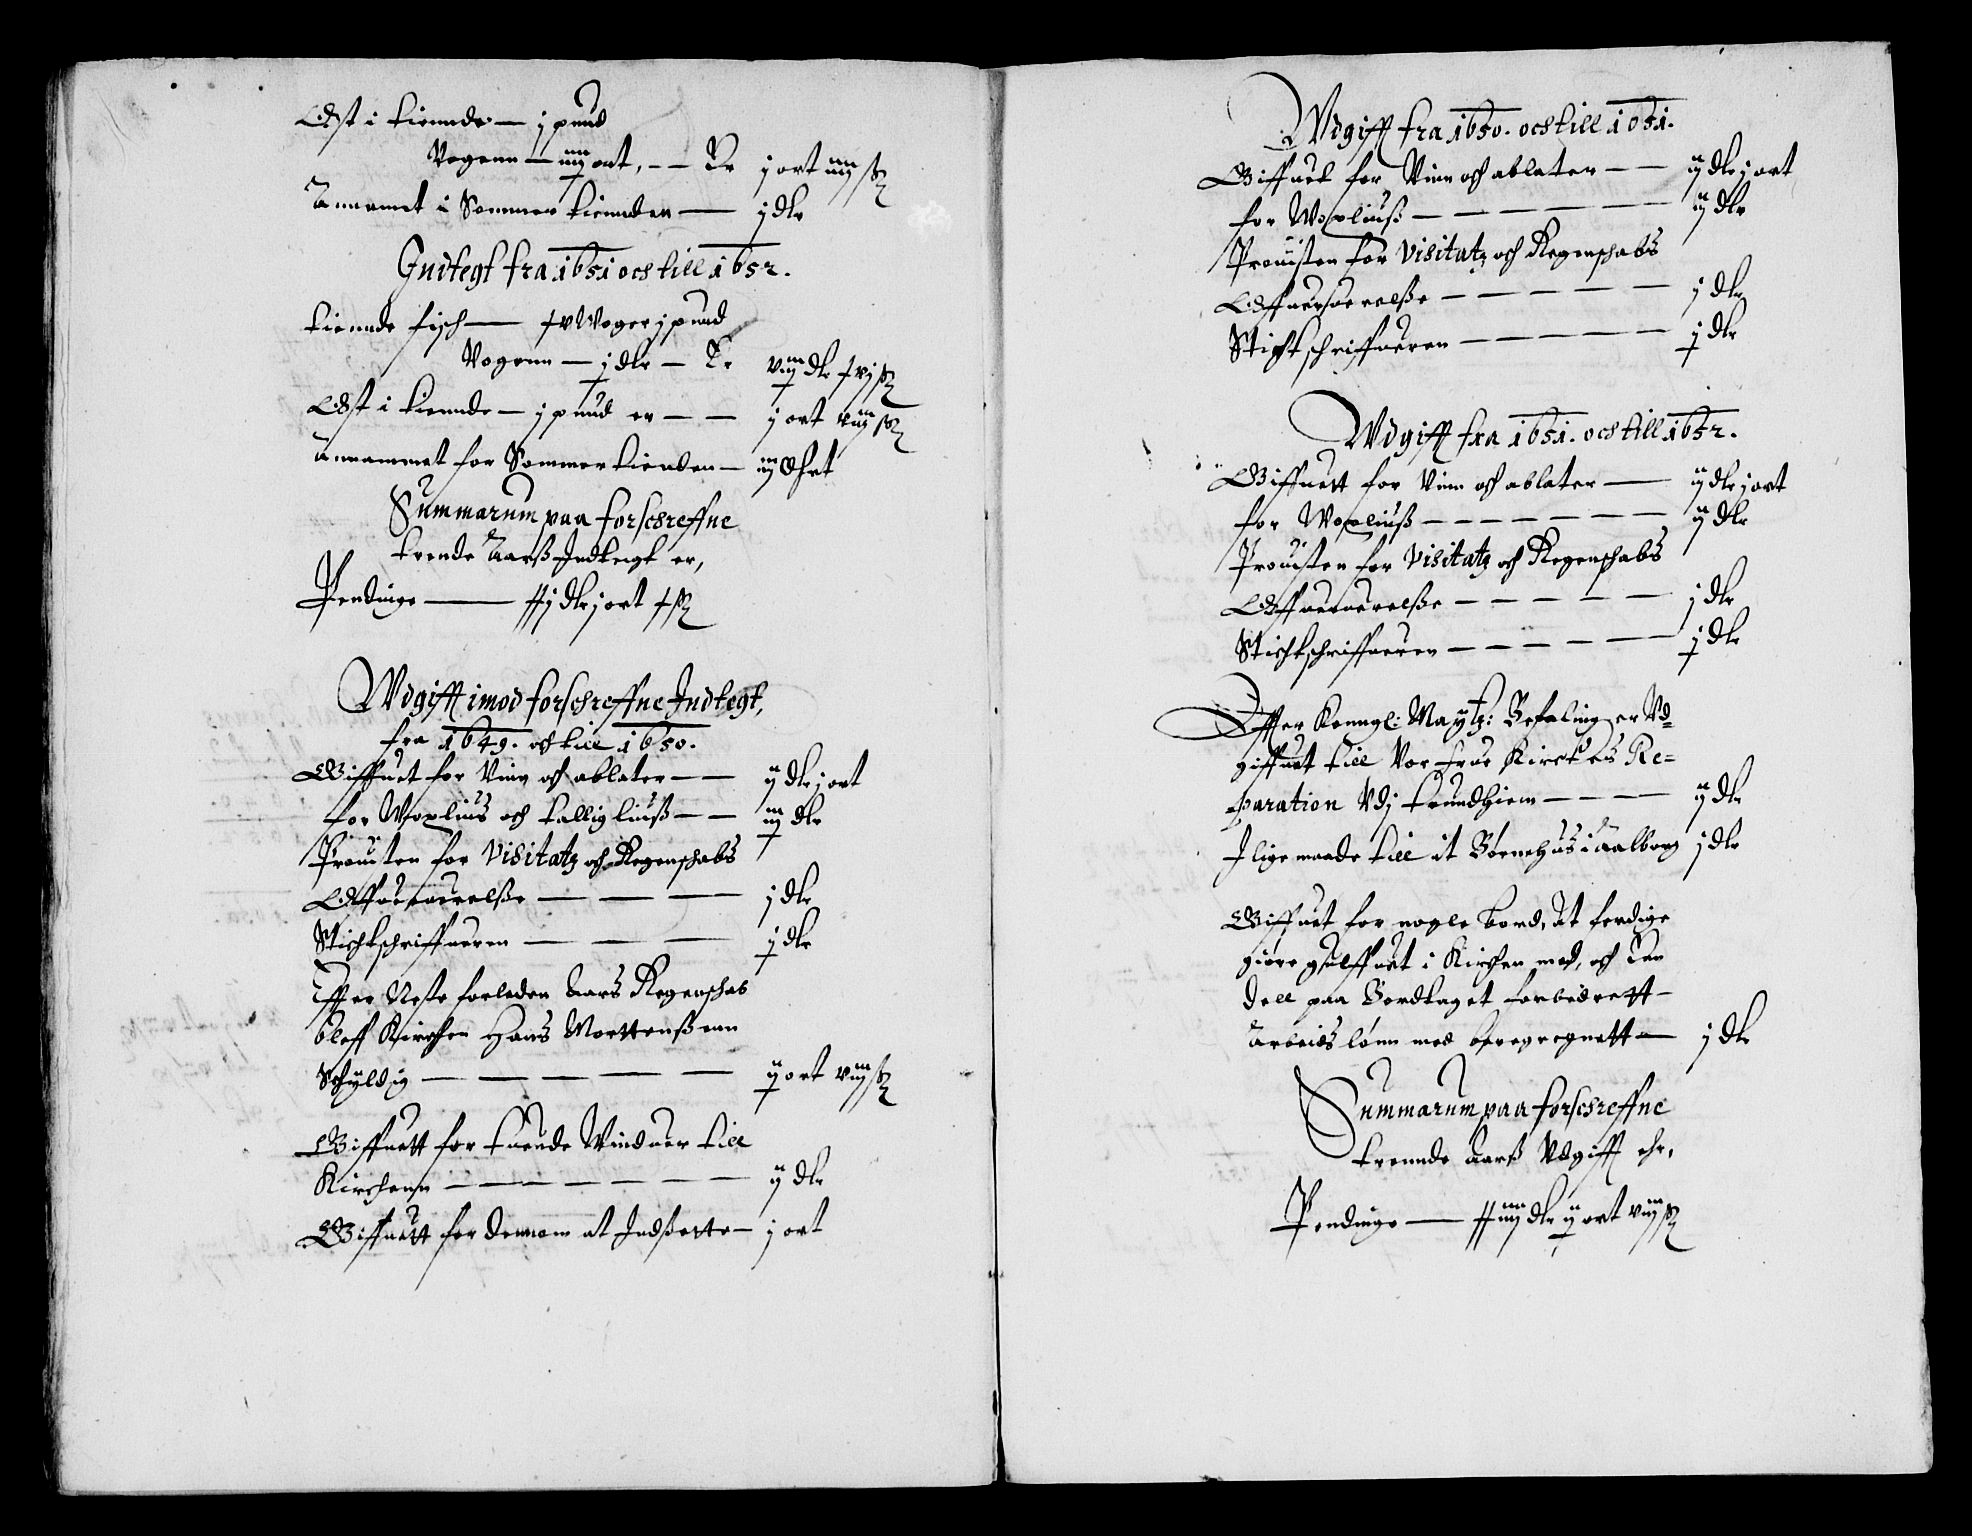 Ost i tiennde — j pund
Vogenn — iiij ort, — — Er j ort iiij ß
Annamet i Sommer tiennden — j dlr
Indtegt fra 1651 och till 1652.
tiennde fisch — xv Woger j pund
Vogenn — j dlr — Er viij dlr xvj ß
Ost i tiennde — j pund er — — j ort viij ß
Annammet for Sommer tienden — iij Ohrt
Summarum paa forschreffne
trende Aarß Indtegt er,
Pendinge — xxj dlr j ort x ß
Wdgifft imod forschreffne Indtegt,
fra 1649. och till 1650.
Giffuet for Viin och ablater — — ij dlr j ort
for Woxlius och tallig liuß — — iiij dlr
Prouisten for Visitatz och Regenschabs
Offueruerelße — — — j dlr
Stichtschriffueren — — — j dlr
Effter Neste forleden Aars Regenschab
bleff Kirchen Hans Morttenß enn
Schyldig — — — — — ij ort viij ß
Giffuett for tuende Winduer till
Kirchenn — — — — — — ij dlr
Giffuett for dennem at Indßette — j ort
Wdgifft fra 1650. och till 1651.
Giffuet for Viin och ablater — — ij dlr j ort
for Woxliuß — — — — — — ij dlr
Prouisten for Visitatz och Regenschabs
Offueruerelße — — — — — j dlr
Stichtschriffueren — — — — j dlr
Wdgifft fra 1651. och till 1652.
Giffuett for Viin och ablater — ij dlr j ort
for Woxliuß — — — — — — ij dlr
Prouisten for Visitatz och Regenschabs
Offueruerelße — — — — — j dlr
Stichtschriffueren — — — — — j dlr
Effter Konngl: Maytz: Befaling er Vd=
giffuet till Vor frue Kirckes Re=
paration Vdj trundhiem — — — ij dlr
Jlige maade till it Børnehus i Aalborg j dlr
Giffuet for nogle bord, At ferdige
giøre gulffuet i Kirchen med, och En
deell paa Bordtaget forbedrett —
Arbeids lønn med beregregnett — j dlr
Summarum paa forschreffne
trennde Aarß Vdgifft ehr,
Pendinge — xxiiij dlr ij ort viij ß